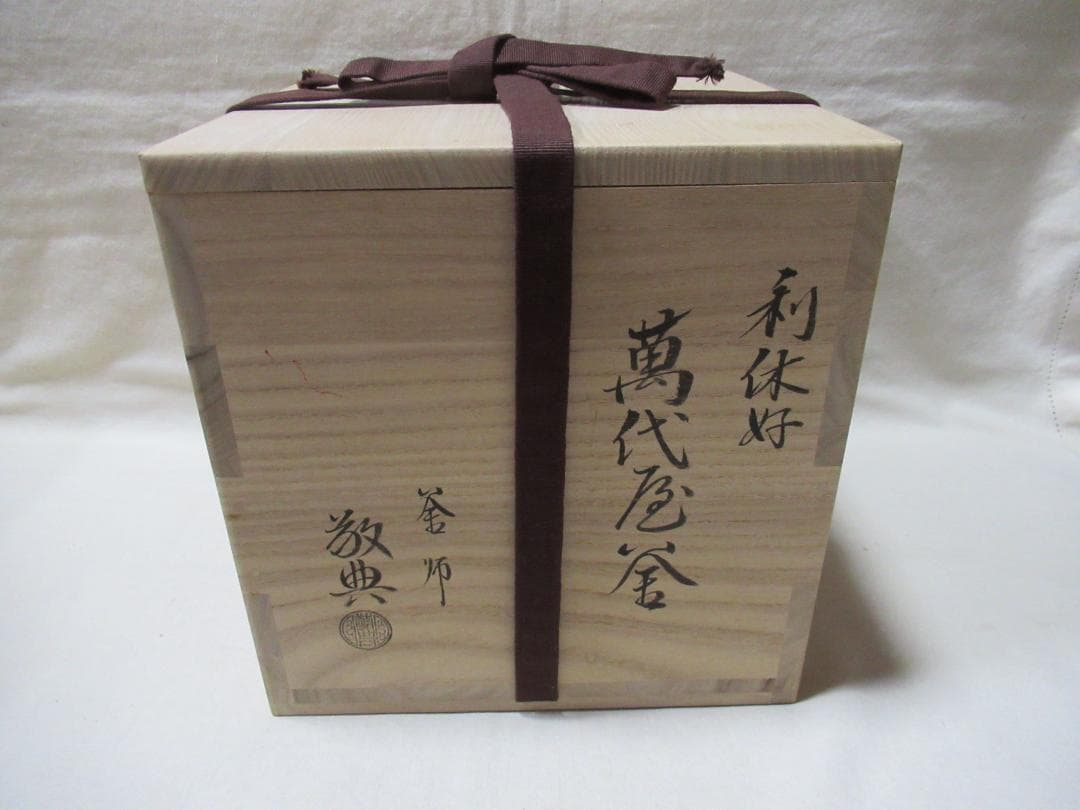 利休好
萬代屋釜
釜師
敬典